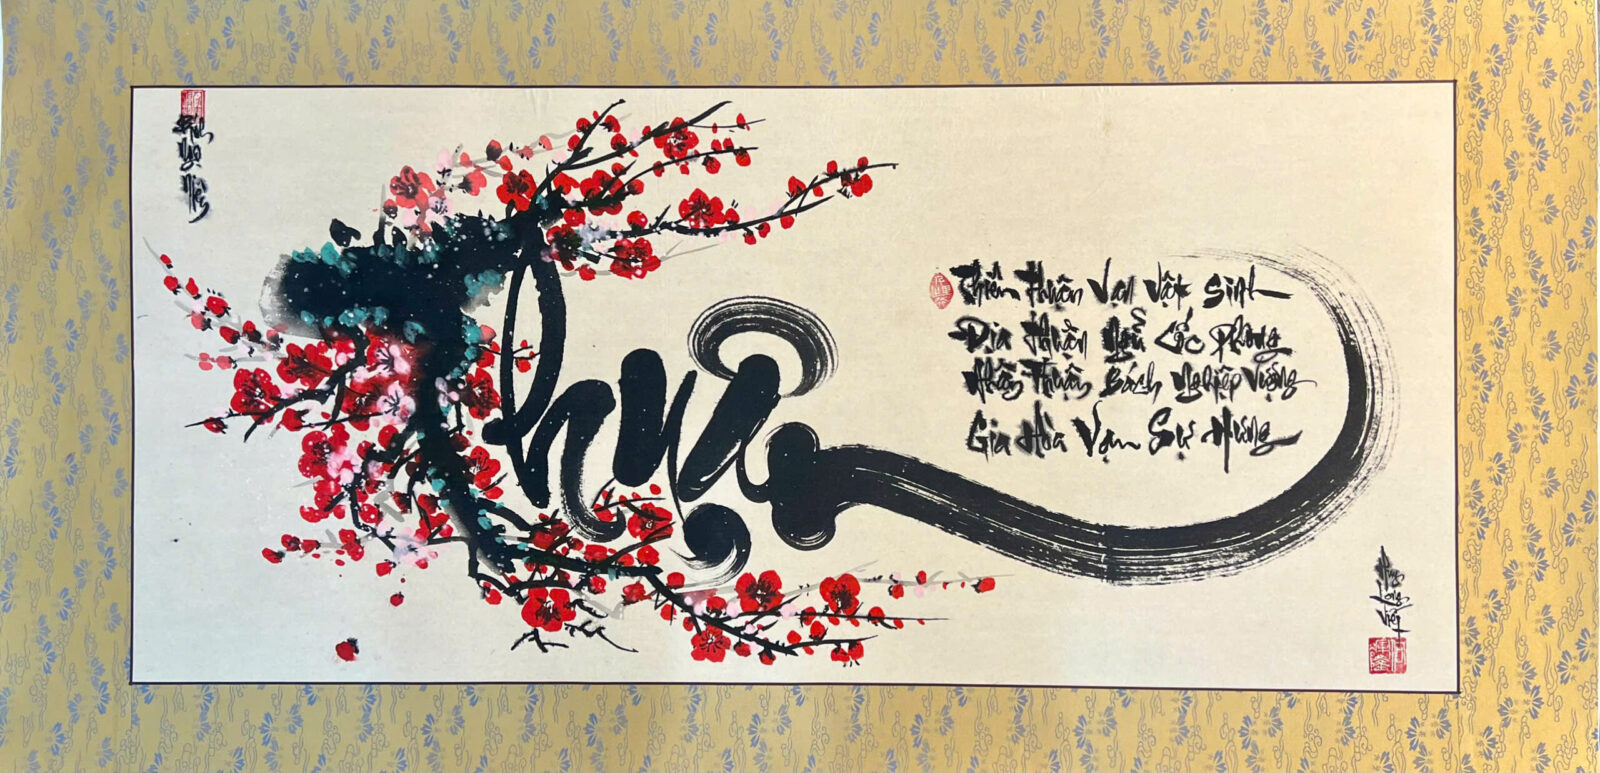 Bính Ngọ Niên
Thuận
Thiên Thuận Vạn Vật Sinh
Địa Thuận Ngũ Cốc Phong
Nhân Thuận Bách Nghiệp Vượng
Gia Hòa Vạn Sự Hưng